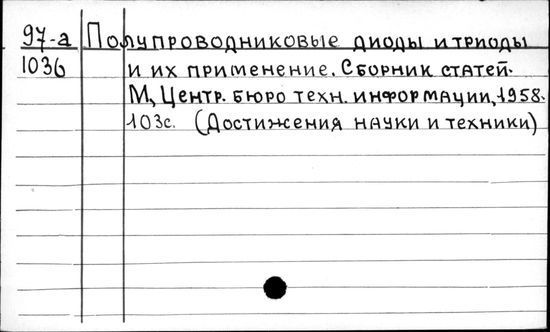 97-а Полупроводниковые диоды и триоды
1036 и их применение. Сборник статей.
М, Центр. бюро техн. информации, 1958.
103с. (Достижения науки и техники)